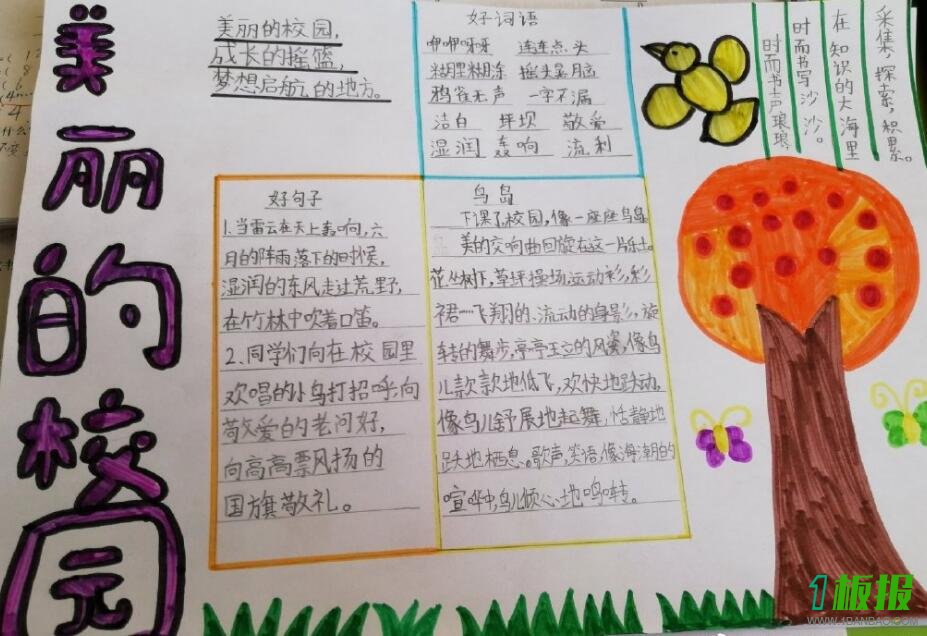 美丽的校园
美丽的校园,
成长的摇篮,
梦想启航的地方。
好词语
咿咿呀呀 连连点头
糊里糊涂 摇头晃脑
鸦雀无声 一字不漏
洁白 坪坝 敬爱
湿润 轰响 流利
采集,探索,积累。
在知识的大海里
时而书写沙沙。
时而书声琅琅
好句子
1.当雷云在天上轰响,六
月的阵雨落下的时候,
湿润的东风走过荒野,
在竹林中吹着口笛。
2.同学们向在校园里
欢唱的小鸟打招呼,向
敬爱的老问好,
向高高飘扬的
国旗敬礼。
鸟岛
下课了,校园,像一座座鸟岛
美的交响曲回旋在这一片乐土。
花丛树下,草坪操场,运动衫,彩
裙……飞翔的、流动的身影,旋
转的舞步,亭亭玉立的风姿,像鸟
儿款款地低飞,欢快地跃动,
像鸟儿舒展地起舞,恬静地
跃地栖息。歌声,笑语,像海潮的
喧哗中,鸟儿倾心地鸣啭。
1板报
WWW.1BANBAO.COM